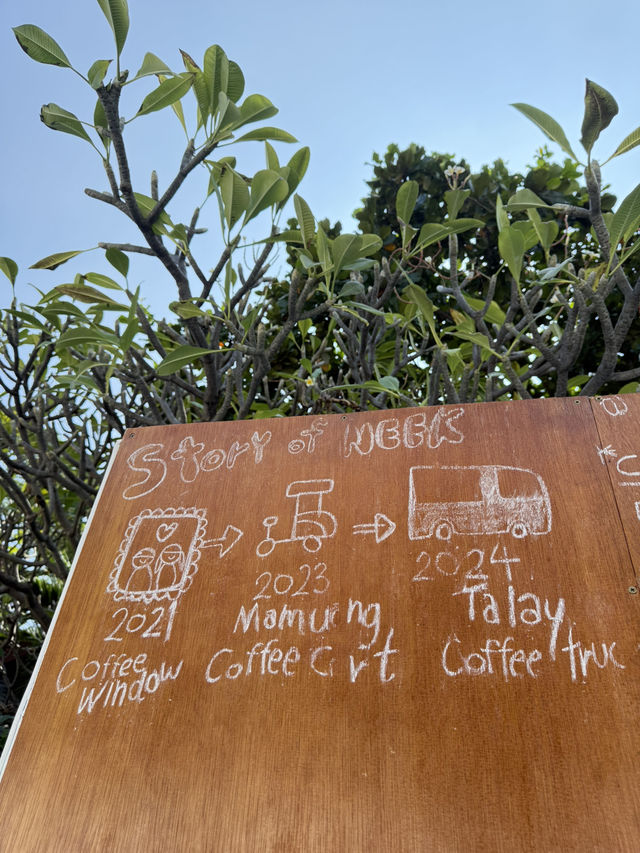 Story of WEEK
2021
2023
2024
Coffee window
Mamueng
Coffee Cart
Talay
Coffee truc